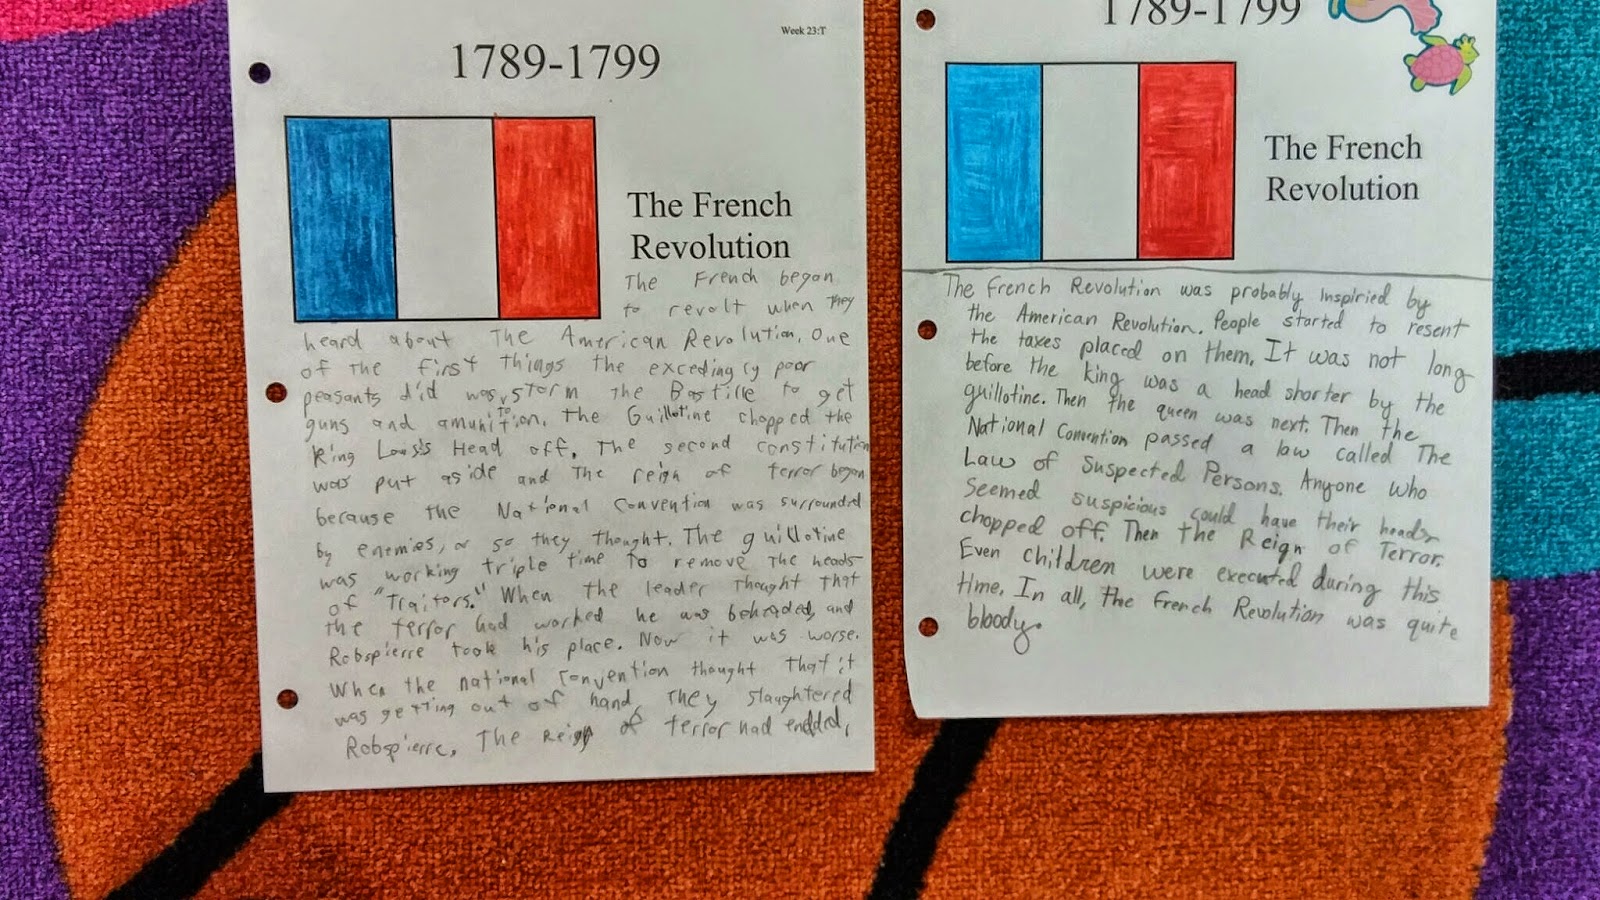 Week 23:T
1789-1799
The French
Revolution
The French began
to revolt when they
heard about the American Revolution. One
of the first things the excedingly poor
peasants did was, storm the Bastille to get
guns and amunition. to The Guillotine chopped the
King Louis's Head off. The second constitution
was put aside and the reign of terror began
because the National Convention was surrounded
by enemies, or so they thought. The guillotine
was working triple time to remove the heads
of "Traitors." When the leader thought that
the terror had worked he was beheaded, and
Robspierre took his place. Now it was worse.
When the national convention thought that it
was getting out of hand, They slaughtered
Robspierre. The Reign of terror had endded.
1789-1799
The French
Revolution
The French Revolution was probably inspiried by
the American Revolution. People started to resent
the taxes placed on them. It was not long
before the king was a head shorter by the
guillotine. Then the queen was next. Then the
National Convention passed a law called The
Law of Suspected Persons. Anyone who
seemed suspicious could have their heads
chopped off. Then the Reign of Terror.
Even children were executed during this
time. In all, the French Revolution was quite
bloody.